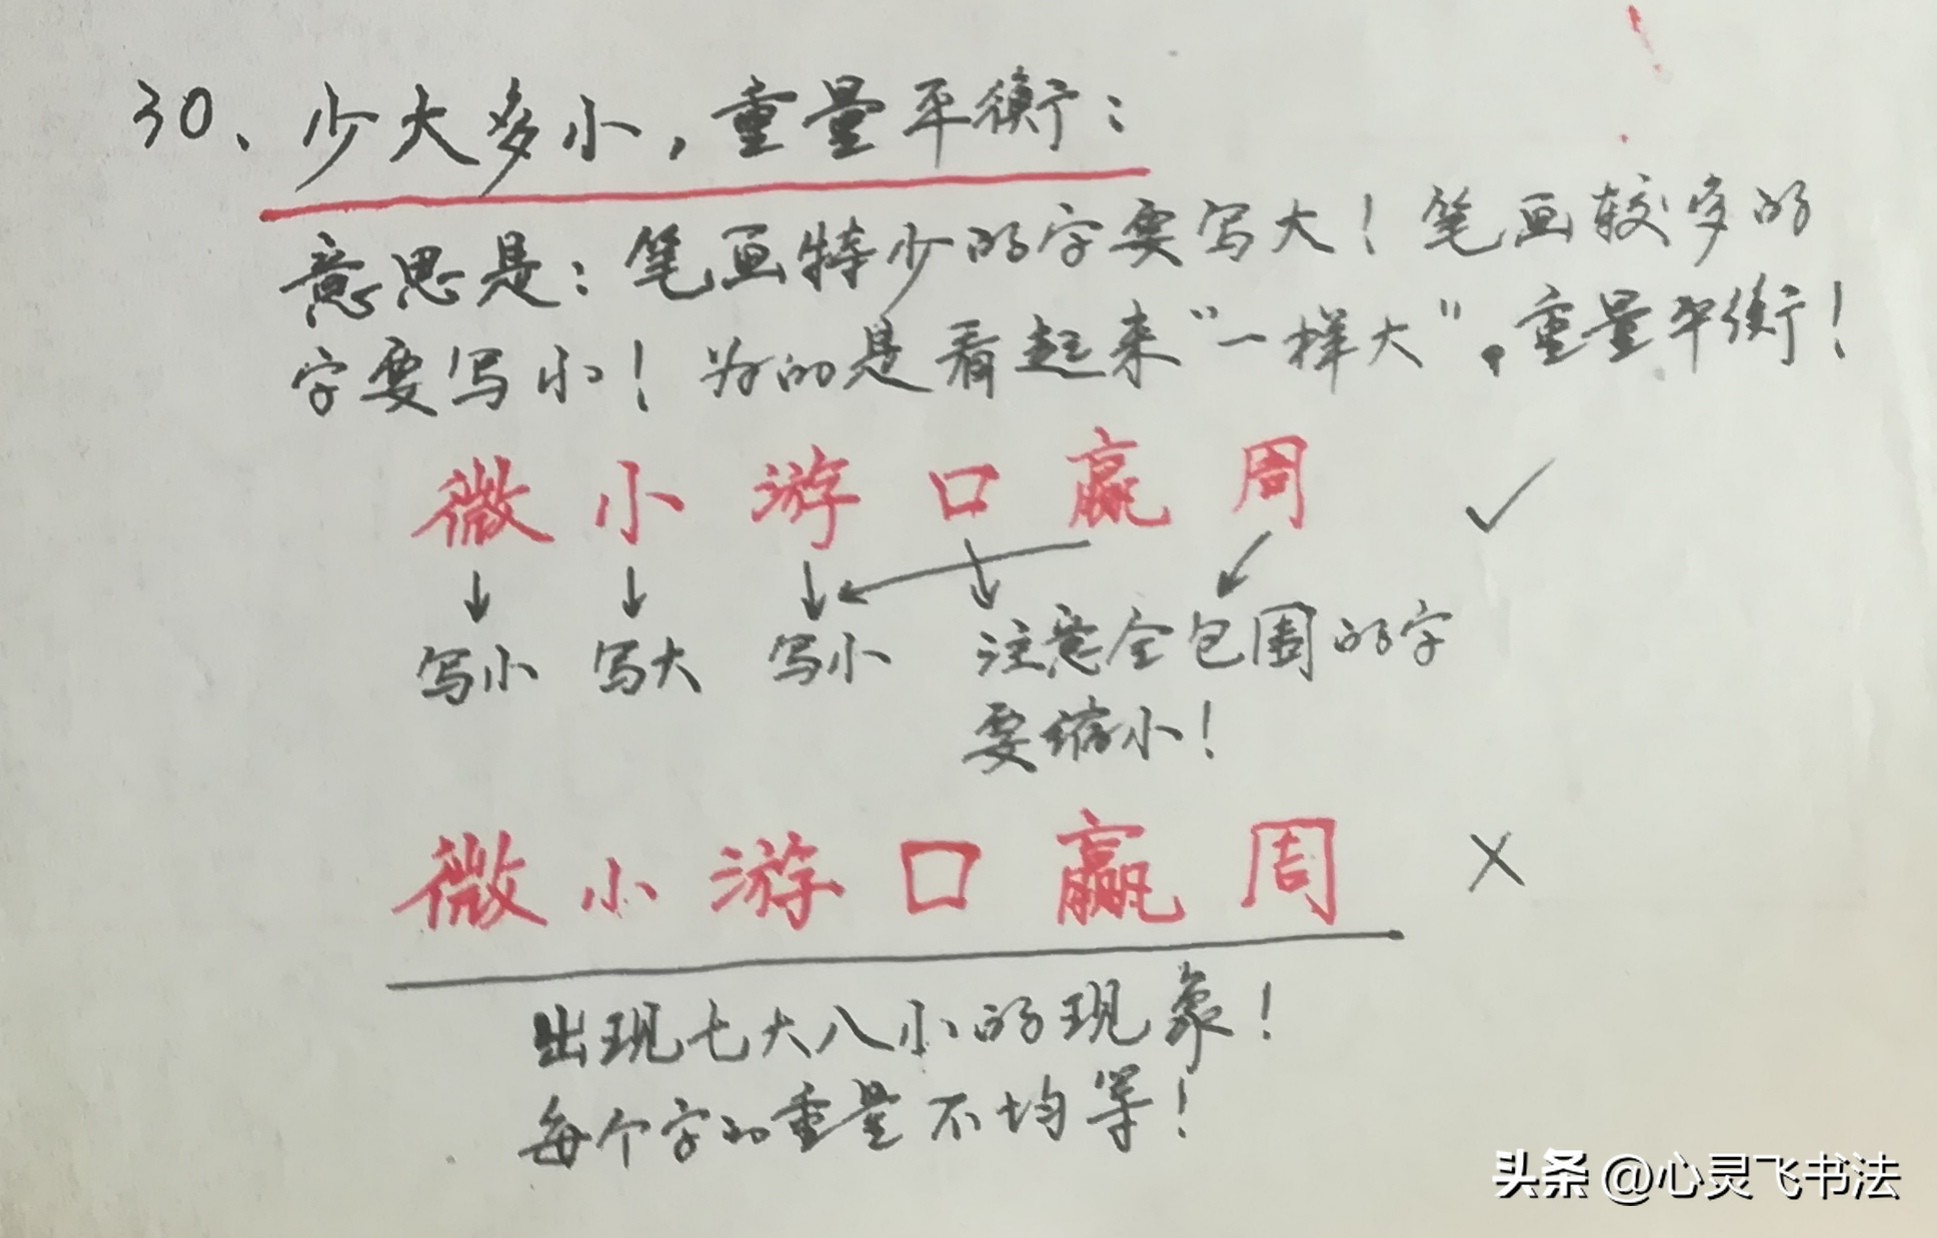 30、少大多小，重量平衡：
意思是：笔画特少的字要写大！笔画较多的
字要写小！为的是看起来“一样大”，重量平衡！
微 小 游 口 赢 周 ✓
写小 写大 写小 注意全包围的字
要缩小！
微 小 游 口 赢 周 ×
出现七大八小的现象！
每个字的重量不均等！
头条 @心灵飞书法